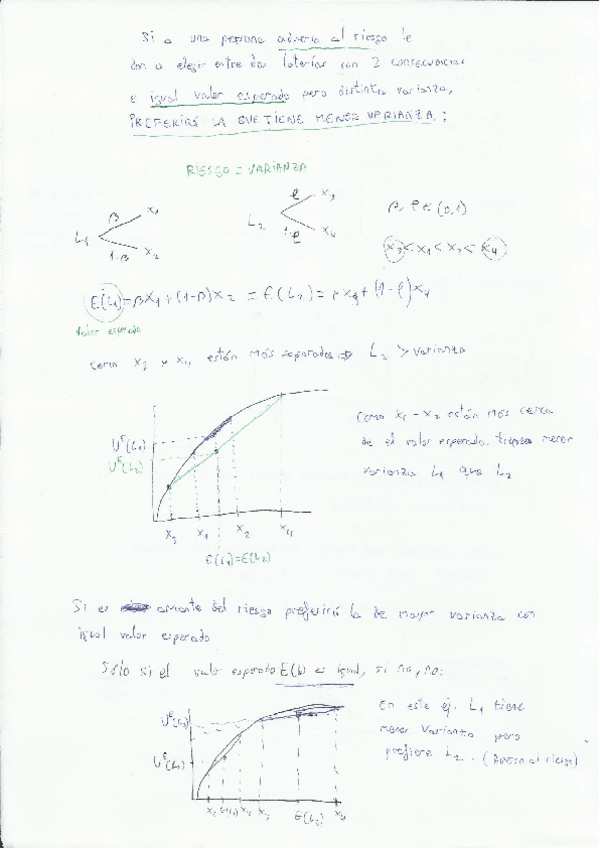 Si a una persona adversa al riesgo le
dan a elegir entre dos loterías con 2 consecuencias
e igual valor esperado pero distinta varianza,
PREFERIRÁ LA QUE TIENE MENOR VARIANZA :
RIESGO = VARIANZA
L1 β x1 1-β x2
L2 ρ x3 1-ρ x4
β, ρ ∈ (0,1)
x3 < x1 < x2 < x4
E(L1) = βx1 + (1-β)x2 = E(L2) = ρx3 + (1-ρ)x4
Valor esperado
como x3 y x4 están más separados ⇒ L2 > varianza
Como x1 - x2 están más cerca
de el valor esperado, menor
varianza L1 que L2
Uᴱ(L1)
Uᴱ(L2)
x3 x1 x2 x4
E(L1)=E(L2)
Si es amante del riesgo preferirá la de mayor varianza con
igual valor esperado
Sólo si el valor esperado E(L) es igual, si no, no:
En este ej. L1 tiene
menor varianza pero
prefiere L2. (Averso al riesgo)
E(L2) x4